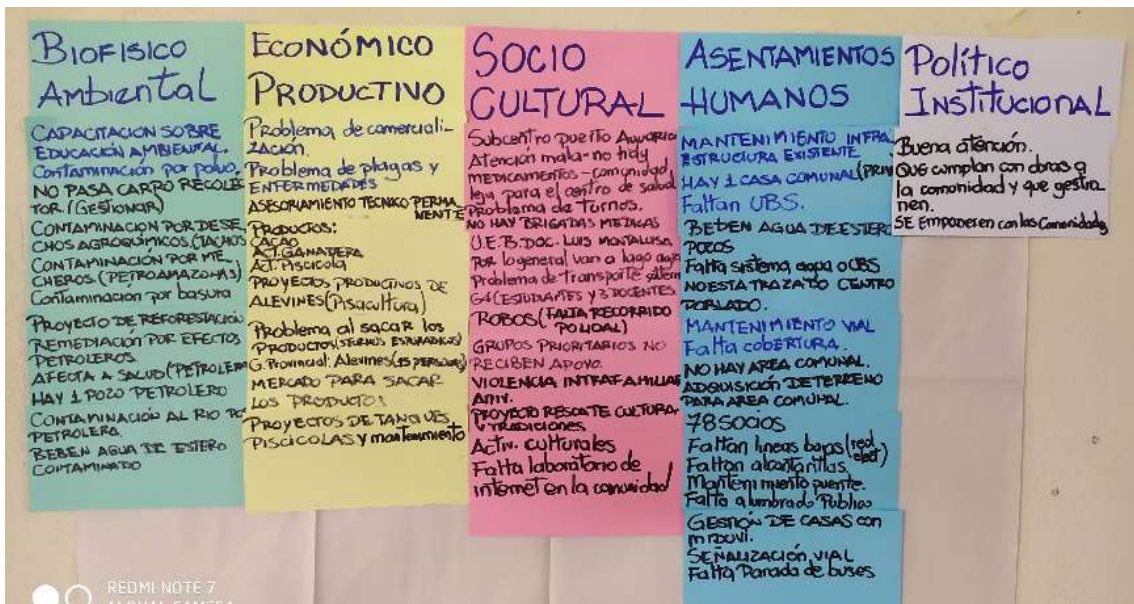 BIOFISICO
AMBIENTAL
CAPACITACION SOBRE
EDUCACIÓN AMBIENTAL.
Contaminación por polvo.
NO PASA CARRO RECOLEC
TOR (Gestionar)
CONTAMINACIÓN POR DESE
CHOS AGROQUÍMICOS (TACHOS
CONTAMINACIÓN POR ME
CHEROS. (PETROAMAZONAS)
Contaminación por basura
PROYECTO DE REFORESTACIÓN
REMEDIACIÓN POR EFECTOS
PETROLEROS
AFECTA A SALUD (PETROLERO
HAY 1 POZO PETROLERO
CONTAMINACIÓN AL RIO POR
PETROLERA.
BEBEN AGUA DE ESTERO
CONTAMINADO
ECONÓMICO
PRODUCTIVO
Problema de comerciali-
zación.
Problema de plagas y
ENFERMEDADES
ASESORAMIENTO TECNICO PERMA
NENTE
PRODUCTOS:
CACAO
ACT. GANADERA
ACT. Piscicola
PROYECTOS PRODUCTIVOS DE
ALEVINES (Pisacultura)
Problema al sacar los
PRODUCTOS
G. Provincial: Alevines (15 personas)
MERCADO PARA SACAR
LOS PRODUCTOS
PROYECTOS DE TANQUES
PISCICOLAS y mantenimiento
SOCIO
CULTURAL
Subcentro puerto Aguarico
Atención mala-no hay
MEDICAMENTOS - comunidad
leja para el centro de salud
Problema de Turnos.
NO HAY BRIGADAS MEDICAS
U.E.B. DOC. LUIS MONTALUISA
POR lo general van a lago agrio
Problema de transporte
64 (ESTUDIANTES Y 3 DOCENTES
ROBOS (FALTA RECORRIDO
POLICIAL)
GRUPOS PRIORITARIOS NO
RECIBEN APOYO.
VIOLENCIA INTRAFAMILIAR
ACTIV.
PROYECTO RESCATE CULTURA
Y TRADICIONES
Activ. culturales
Falta laboratorio de
internet en la comunidad
ASENTAMIENTOS
HUMANOS
MANTENIMIENTO INFRA
ESTRUCTURA EXISTENTE
HAY 1 CASA COMUNAL (PRIV
Faltan UBS.
BEBEN AGUA DE ESTERO
POZOS
Falta sistema agua o UBS
NO ESTA TRAZATO CENTRO
POBLADO.
MANTENIMIENTO VIAL
Falta cobertura.
NO HAY AREA COMUNAL.
ADQUISICIÓN DE TERRENO
PARA AREA COMUNAL.
78 SOCIOS
Faltan lineas bajas (red
elect)
Faltan alcantarillas,
Mantenimiento puente.
Falta alumbrado Publico
GESTIÓN DE CASAS con
MIDUVI.
SEÑALIZACIÓN VIAL
Falta Parada de buses
Político
INSTITUCIONAL
Buena atención.
QUE cumplan con obras a
la comunidad y que gestio
nen.
SE Empoderen con las Comunidades
REDMI NOTE 7